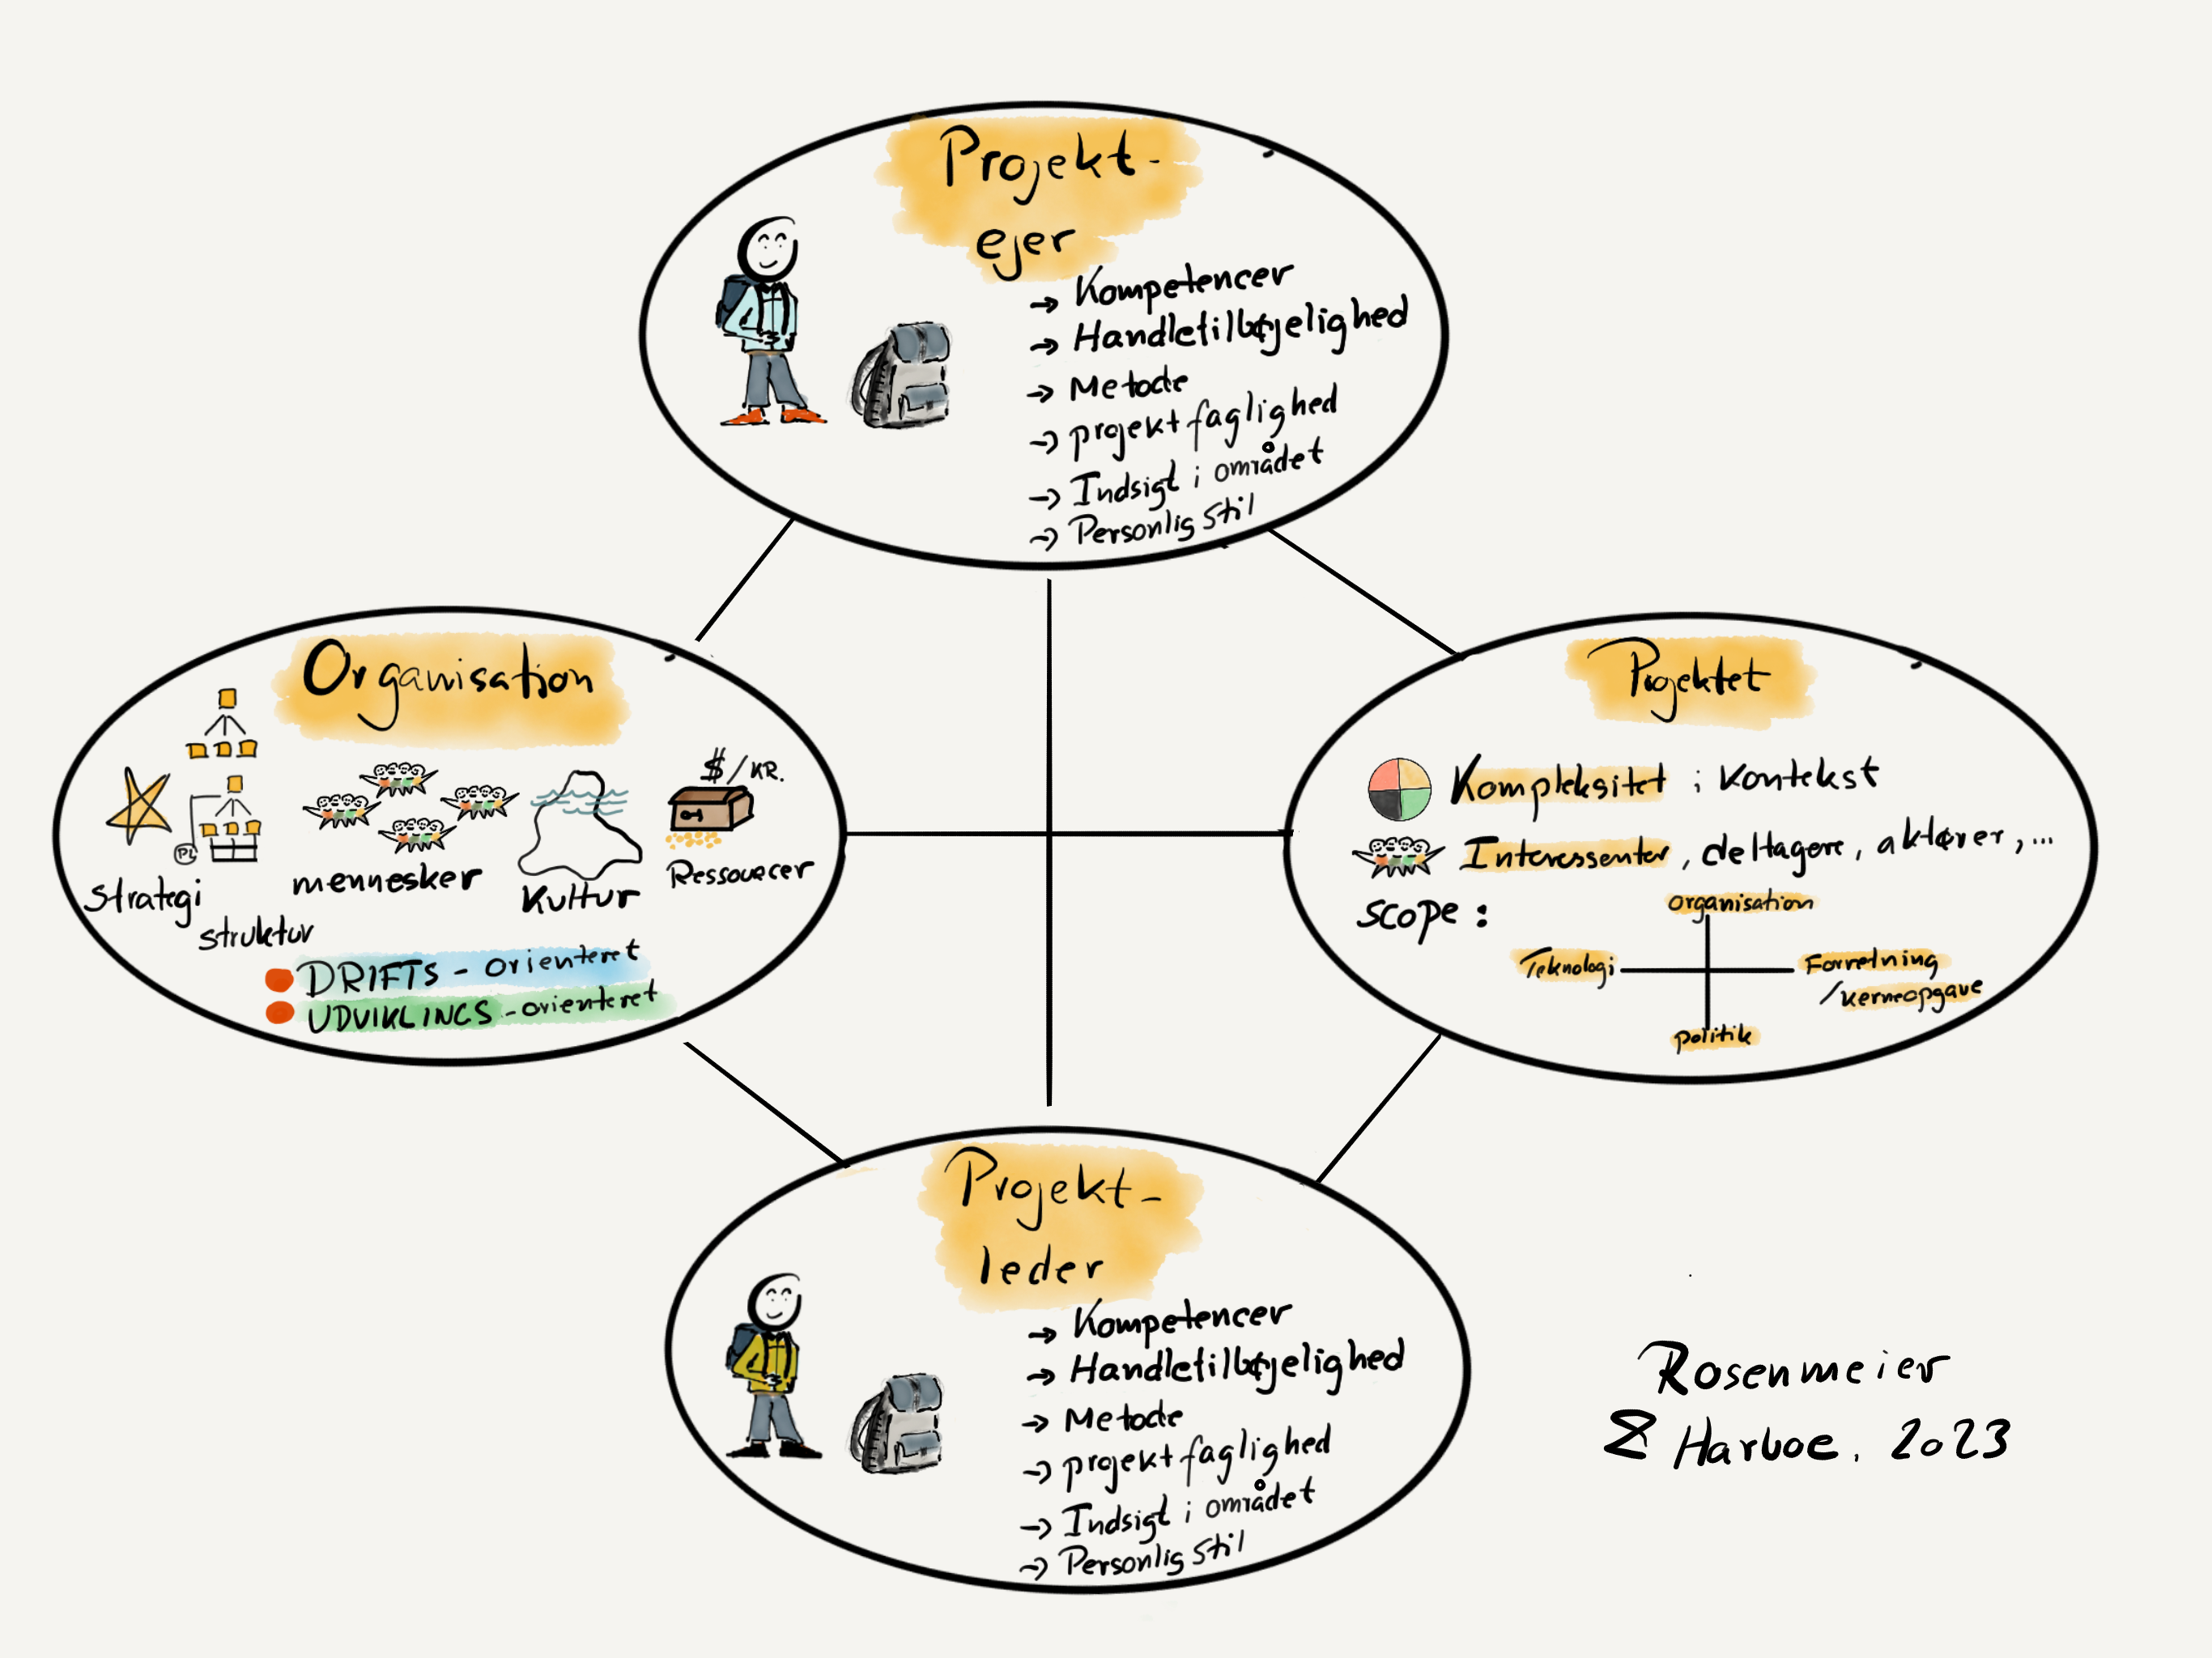 Projekt-
ejer
→ Kompetencer
→ Handletilbøjelighed
→ Metode
→ projektfaglighed
→ Indsigt i området
→ Personlig stil
Organisation
$/KR.
PL
strategi
struktur
mennesker
Kultur
Ressourcer
DRIFTS - orienteret
UDVIKLINGS - orienteret
Projektet
Kompleksitet i kontekst
Interessenter, deltagere, aktører, ...
scope:
organisation
Teknologi
Forretning
/kerneopgave
politik
Projekt-
leder
→ Kompetencer
→ Handletilbøjelighed
→ Metode
→ projektfaglighed
→ Indsigt i området
→ Personlig stil
Rosenmeier
& Harboe, 2023